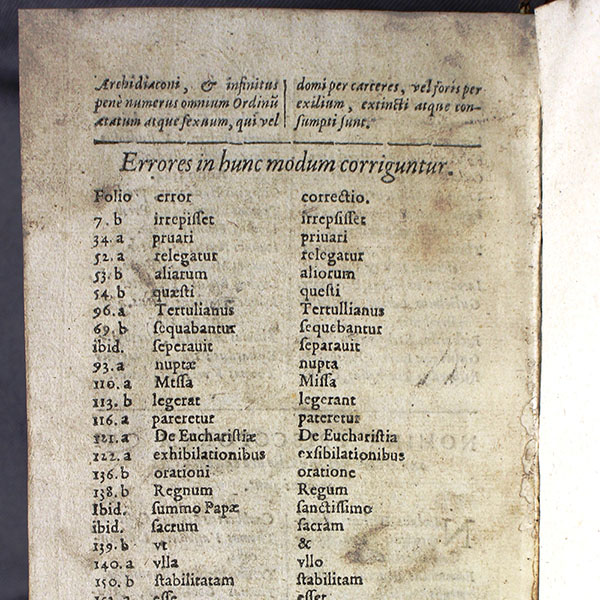 Archidiaconi, & infinitus
penè numerus omnium Ordinũ
ætatum atque sexuum, qui vel
domi per carceres, vel foris per
exilium, extincti atque con-
sumpti sunt.
Errores in hunc modum corriguntur.
Folio error correctio.
7. b irrepisset irrepsisset
34. a pruari priuari
52. a relegatur relegatur
53. b aliarum aliorum
54. b quæsti questi
96. a Tertulianus Tertullianus
69. b sequabantur sequebantur
ibid. seperauit separauit
93. a nuptæ nupta
110. a Mtssa Missa
113. b legerat legerant
116. a pareretur pateretur
121. a De Eucharistiæ De Eucharistia
122. a exhibilationibus exsibilationibus
136. b orationi oratione
138. b Regnum Regum
Ibid. summo Papæ sanctissimo
ibid. sacrum sacram
139. b vt &
140. a vlla vllo
150. b stabilitatam stabilitam
esse esset